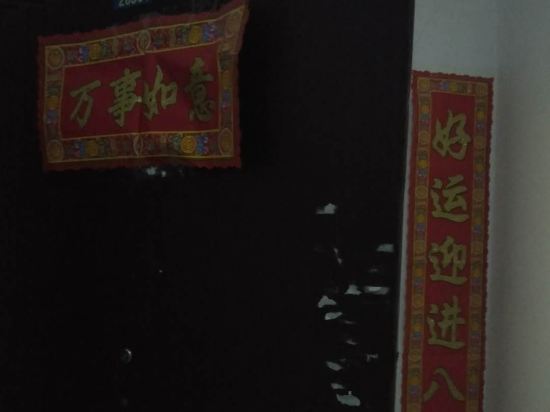 万事如意
好运迎进八